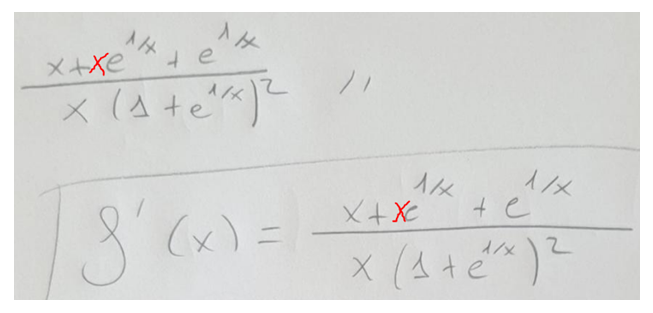 (x+xe^{1/x} + e^{1/x})/(x (1+e^{1/x})^2) //
f'(x) = (x+xe^{1/x} + e^{1/x})/(x (1+e^{1/x})^2)